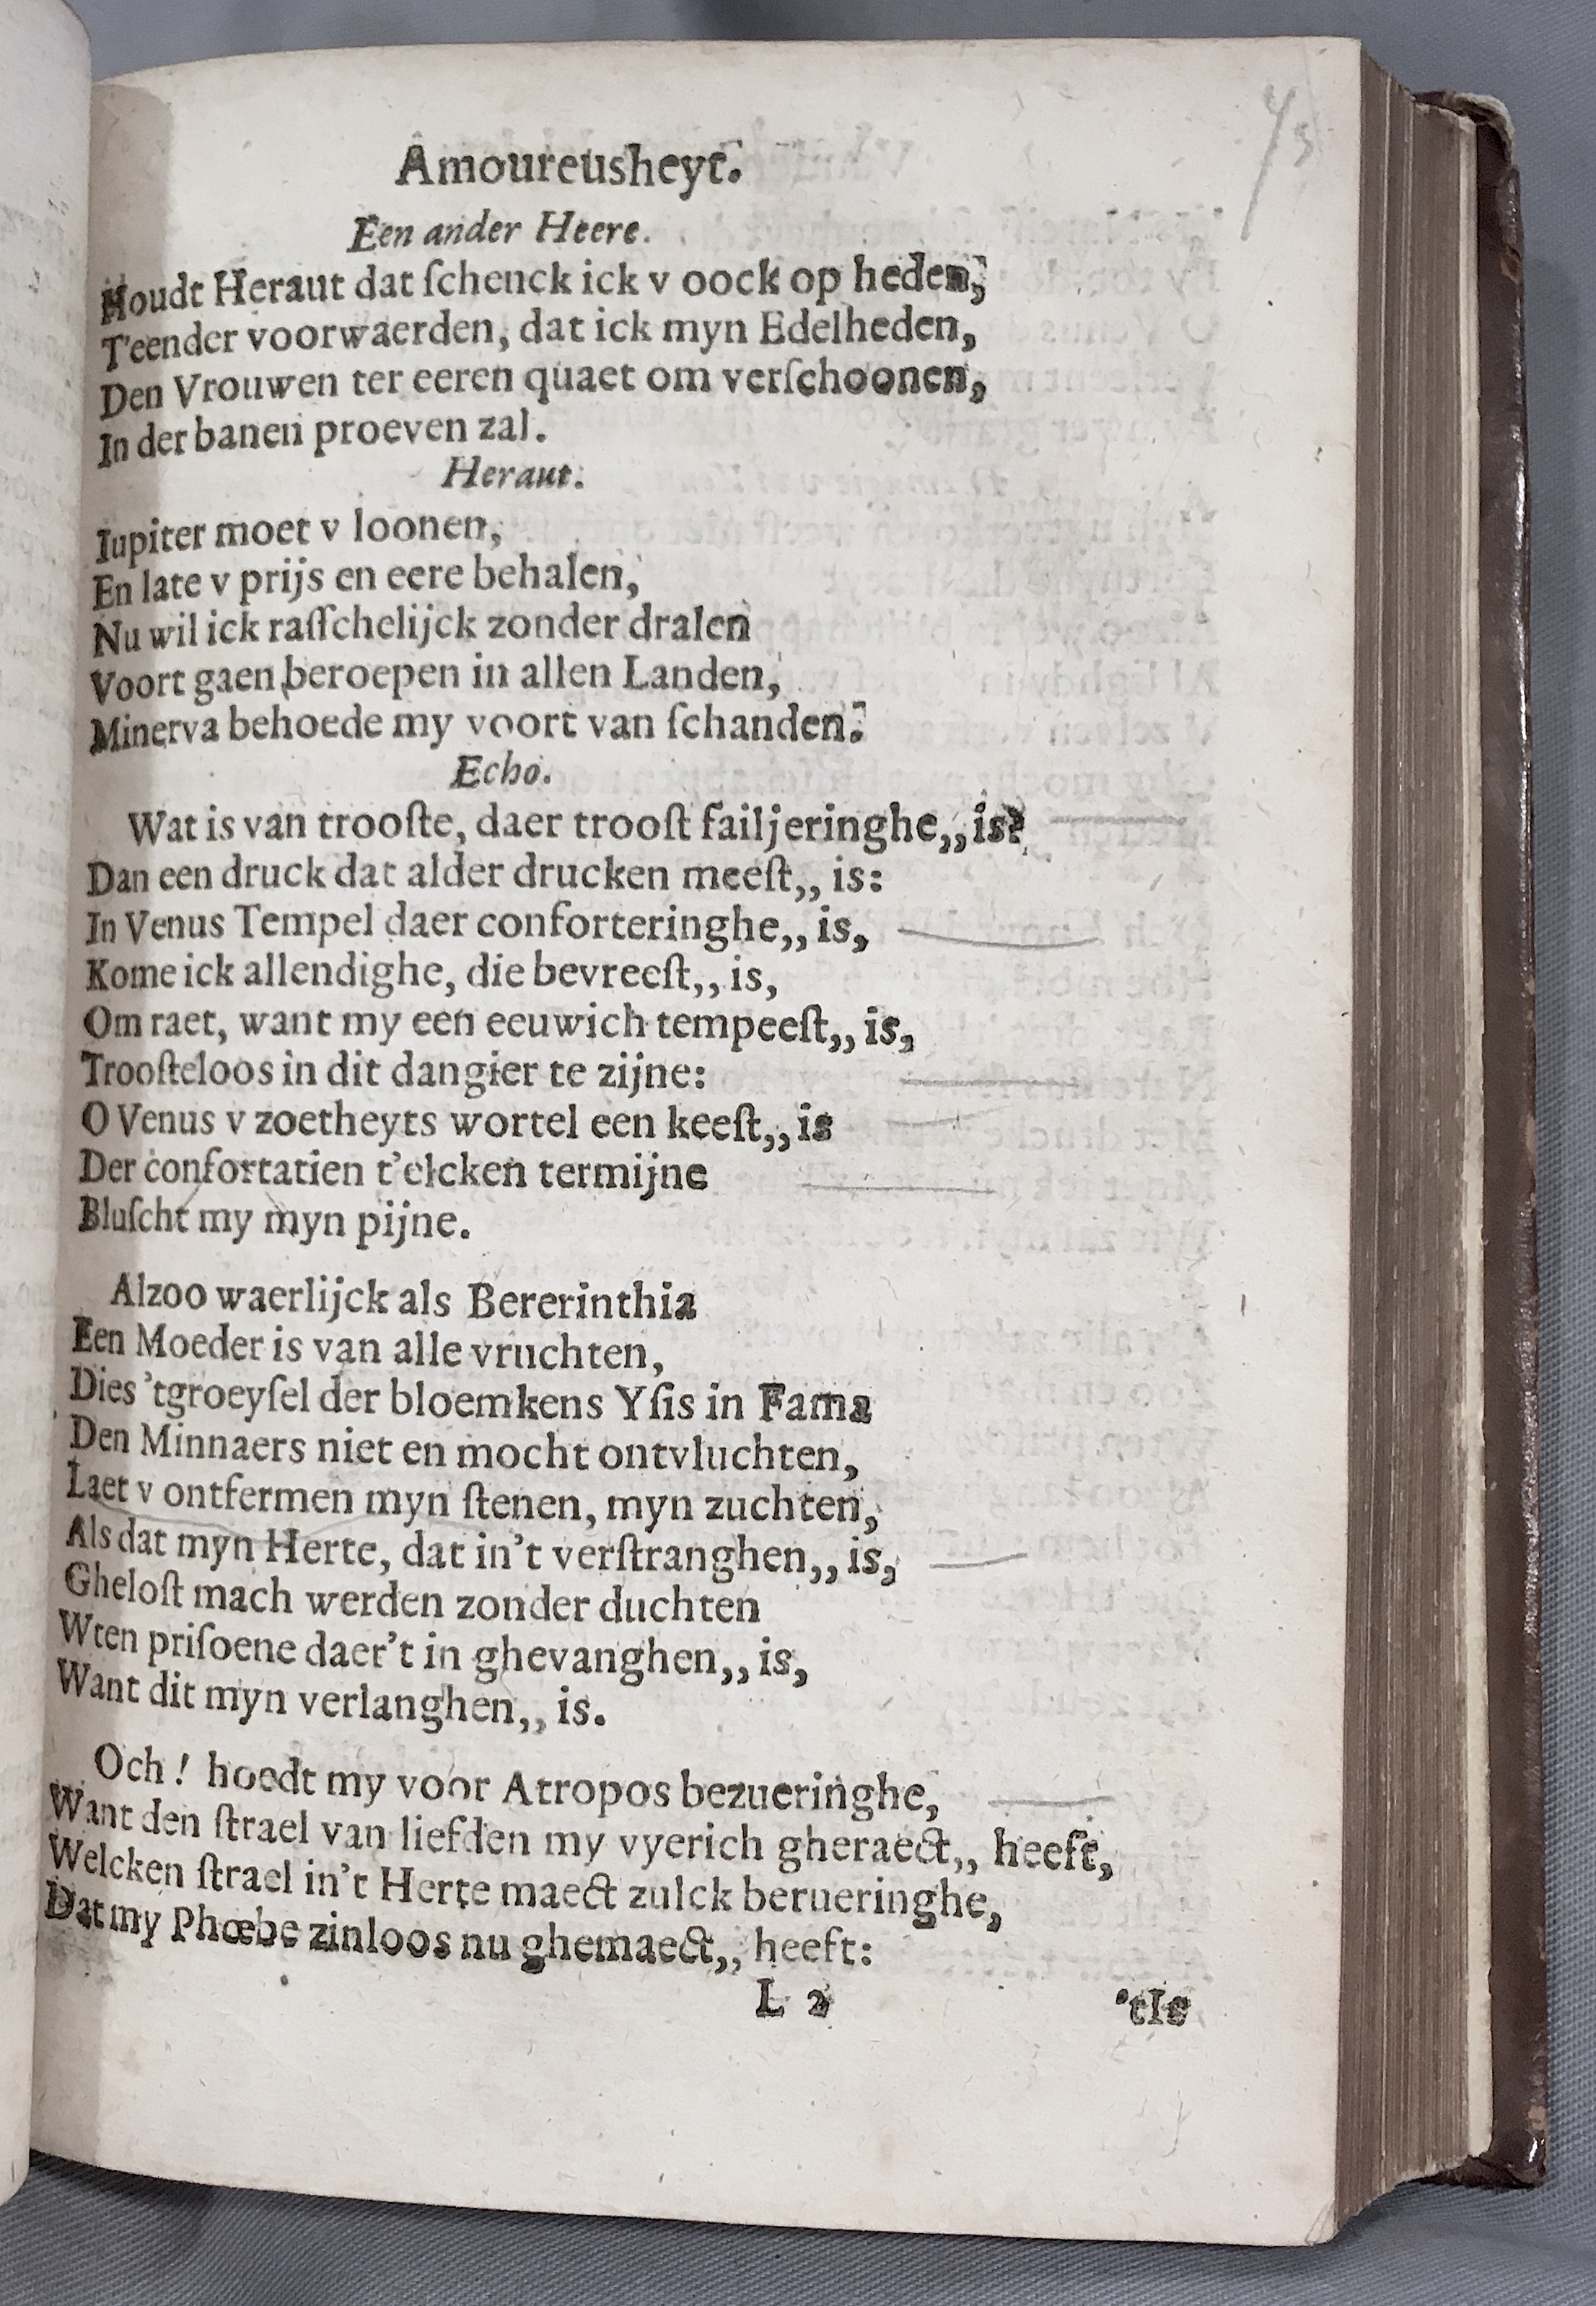 Amoureusheyt.
Een ander Heere.
Houdt Heraut dat ſchenck ick v oock op heden,
T'eender voorwaerden, dat ick myn Edelheden,
Den Vrouwen ter eeren quaet om verſchoonen,
In der banen proeven zal.
Heraut.
Iupiter moet v loonen,
En late v prijs en eere behalen,
Nu wil ick raſſchelijck zonder dralen
Voort gaen beroepen in allen Landen,
Minerva behoede my voort van ſchanden.
Echo.
Wat is van trooſte, daer trooſt failjeringhe,, is?
Dan een druck dat alder drucken meeſt,, is:
In Venus Tempel daer conforteringhe,, is,
Kome ick allendighe, die bevreeſt,, is,
Om raet, want my een eeuwich tempeeſt,, is,
Trooſteloos in dit dangier te zijne:
O Venus v zoetheyts wortel een keeſt,, is
Der confortatien t'elcken termijne
Bluſcht my myn pijne.
Alzoo waerlijck als Bererinthia
Een Moeder is van alle vruchten,
Dies 'tgroeyſel der bloemkens Yſis in Fama
Den Minnaers niet en mocht ontvluchten,
Laet v ontfermen myn ſtenen, myn zuchten,
Als dat myn Herte, dat in't verſtranghen,, is,
Gheloſt mach werden zonder duchten
Wten priſoene daer't in ghevanghen,, is,
Want dit myn verlanghen,, is.
Och! hoedt my voor Atropos bezueringhe,
Want den ſtrael van liefden my vyerich gheraect,, heeft,
Welcken ſtrael in't Herte maect zulck berueringhe,
Dat my Phœbe zinloos nu ghemaect,, heeft:
L 2
'tIs